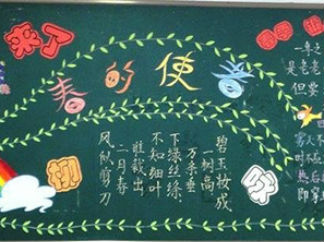 来了
春的使者
咏
柳
碧玉妆成
一树高
万条垂
下绿丝绦
不知细叶
谁裁出
二月春
风似剪刀
一年之
是老老
但要